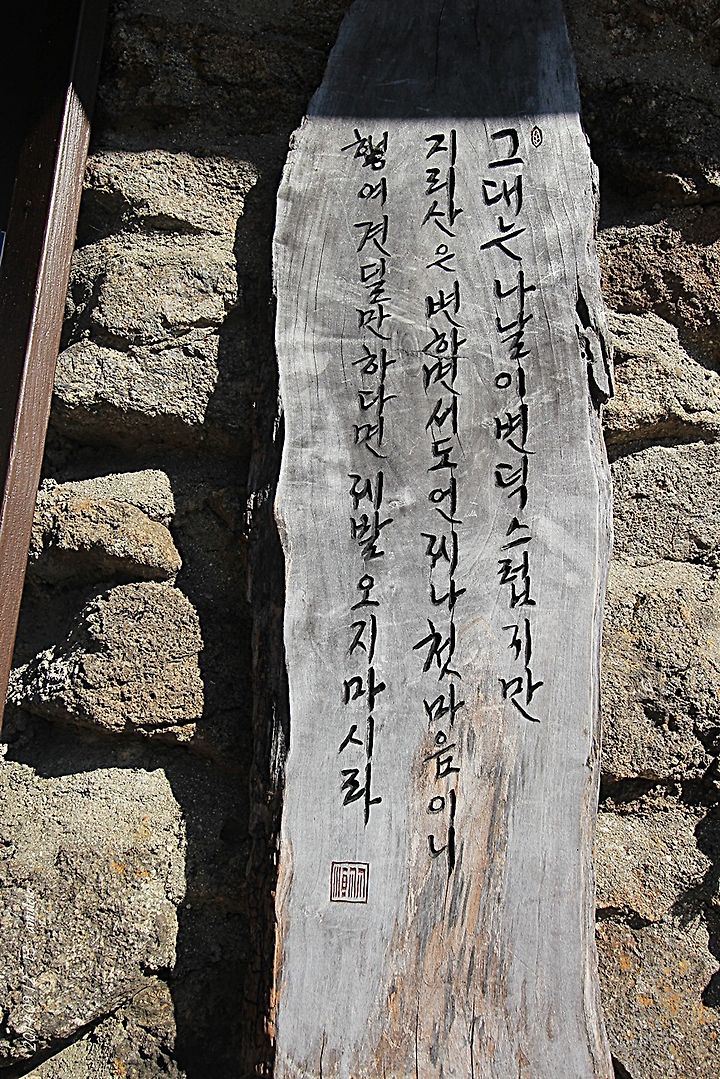 그대는 나날이 변덕스럽지만
지리산은 변하면서도 언제나 첫 마음이니
행여 견딜만하다면 제발 오지 마시라